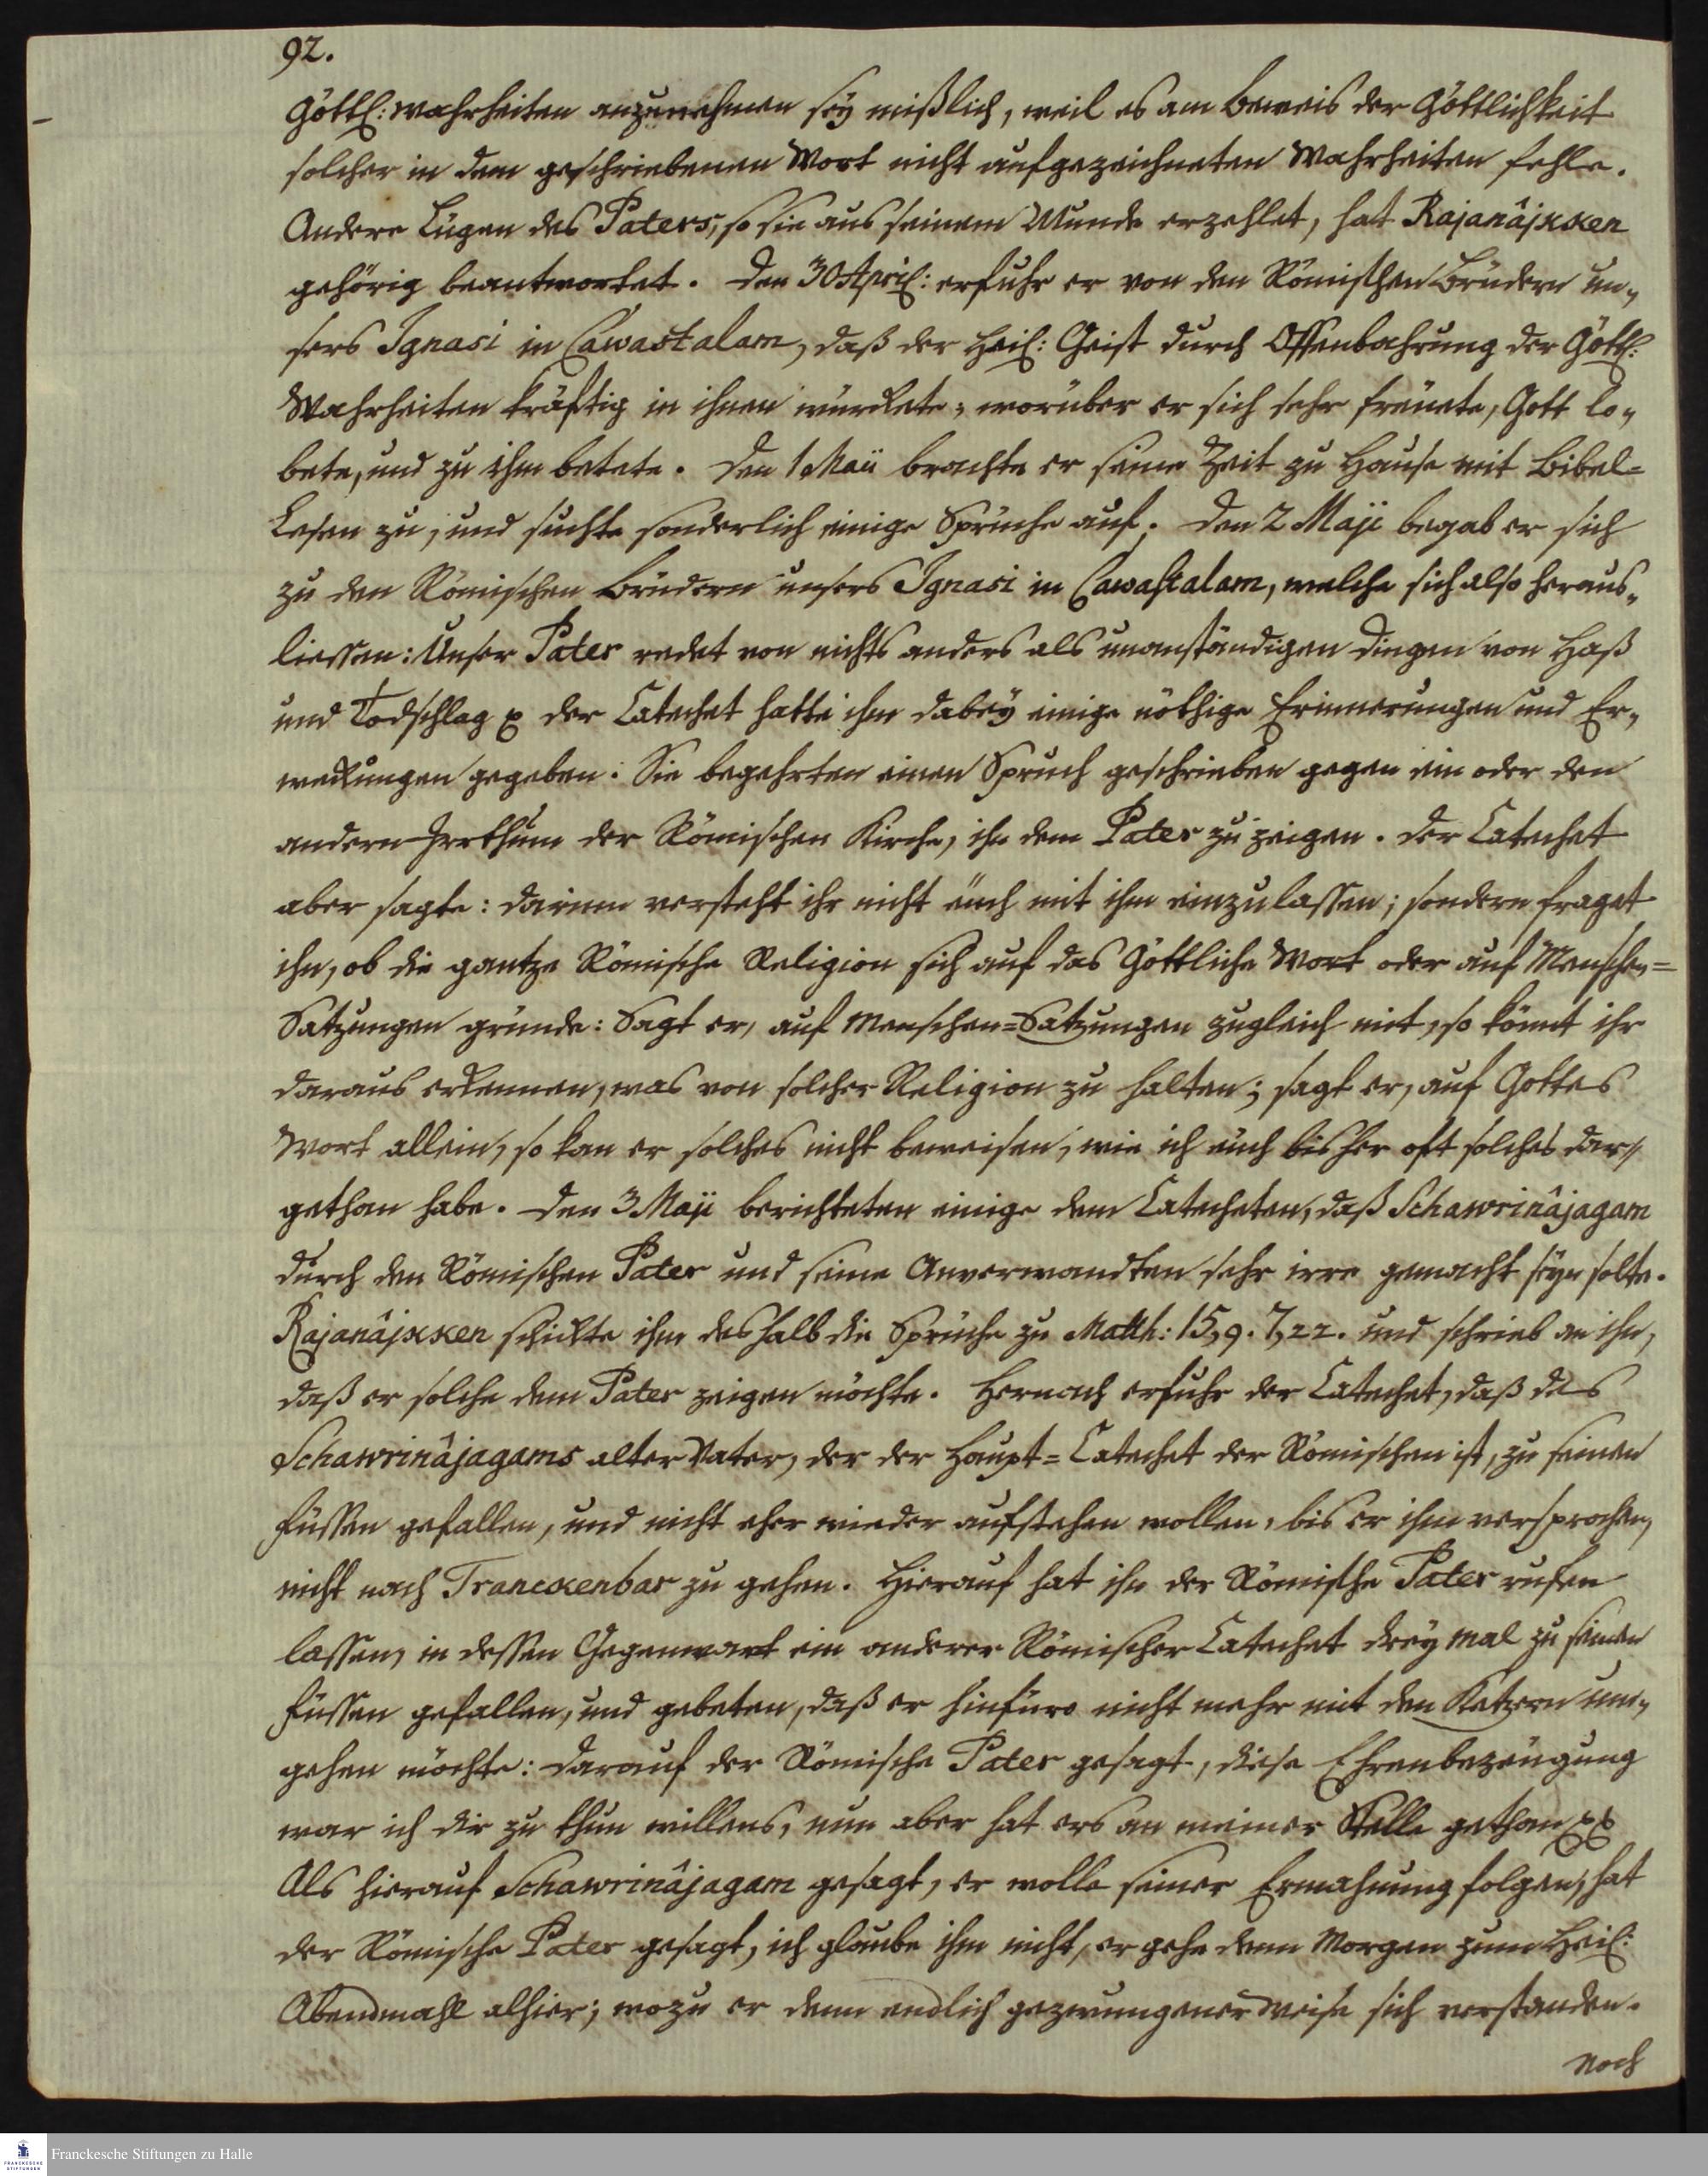 92.
Göttl: wahrheiten anzunehmen sey mißlich, weil es am Beweis der Göttlichkeit
solcher in dem geschriebenen Wort nicht aufgezeichneten Wahrheiten fehle.
Andere Lügen des Paters, so sie aus seinem Munde erzehlet, hat Rajanâjkken
gehörig beantwortet. Den 30 April: erfuhr er von den Römischen Brüdern un„
sers Ignasi in Cawastalam, daß der Heil: Geist durch Offenbahrung der Göttl:
Wahrheiten kräftig in ihnen würckete, worüber er sich sehr freuete, Gott lo„
bete, und zu ihm betete. Den 1 Maii brachte er seine Zeit zu Hause mit Bibel=
Lesen zu, und suchte sonderlich einige Sprüche auf. Den 2 Maji begab er sich
zu den Römischen Brüdern unsers Ignasi in Cawastalam, welche sich also heraus„
liessen: Unser Pater redet von nichts anders als unanständigen Dingen von Haß
und Todschlag p der Catechet hatte ihm dabey einige nöthige Erinnerungen und Er„
weckungen gegeben. Sie begehrten einen Spruch geschrieben gegen ein oder den
andern Irrthum der Römischen Kirche, ihn dem Pater zu zeigen. Der Catechet
aber sagte: darinn versteht ihr nicht euch mit ihm einzulassen; sondern fraget
ihn, ob die gantze Römische Religion sich auf das Göttliche Wort oder auf Menschen=
Satzungen gründe: Sagt er, auf Menschen=Satzungen zugleich mit, so könnt ihr
daraus erkennen, was von solcher Religion zu halten; sagt er, auf Gottes
Wort allein, so kan er solches nicht beweisen, wie ich euch bisher oft solches dar„
gethan habe. Den 3 Maji berichteten einige dem Catecheten, daß Schawrinâjagam
durch den Römischen Pater und seine Anverwandten sehr irre gemacht seyn solte.
Rajanâjkken schickte ihm deshalb die Sprüche zu Matth: 15,9. 7,22. und schrieb an ihn,
daß er solche dem Pater zeigen möchte. Hernach erfuhr der Catechet, daß des
Schawrinâjagams alter Vater, der der Haupt=Catechet der Römischen ist, zu seinen
Füssen gefallen, und nicht eher wieder aufstehen wollen, bis er ihm versprochen,
nicht nach Tranckenbar zu gehen. Hierauf hat ihn der Römische Pater rufen
lassen, in dessen Gegenwart ein anderer Römischer Catechet drey mal zu seinen
Füssen gefallen, und gebeten, daß er hinfüro nicht mehr mit den Ketzern um„
gehen möchte: darauf der Römische Pater gesagt, diese Ehrenbezeugung
war ich dir zu thun willens, nun aber hat ers an meiner Stelle gethan pp
Als hierauf Schawrinâjagam gesagt, er wolle seiner Ermahnung folgen, hat
der Römische Pater gesagt, ich glaube ihm nicht, er gehe denn Morgen zum Heil:
Abendmahl alhier; wozu er denn endlich gezwungener weise sich verstanden.
Noch
Franckesche Stiftungen zu Halle
FRANCKESCHE STIFTUNGEN